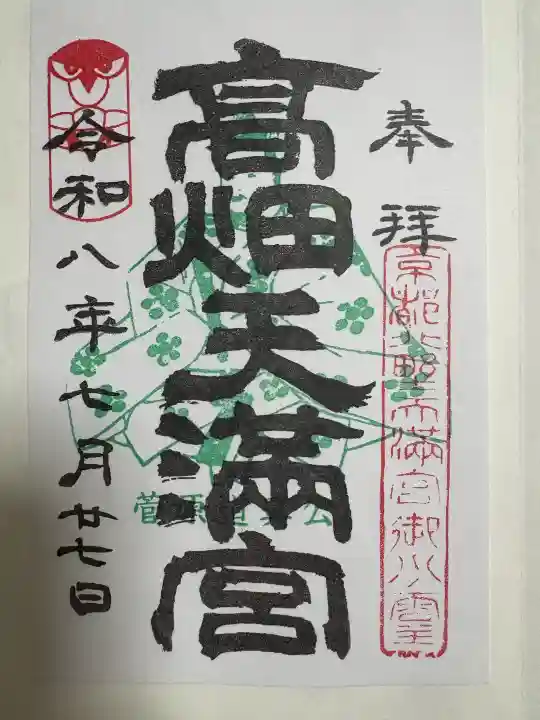 奉拝
京都北野天満宮御分霊
高畑天満宮
菅原道真公
令和八年七月廿七日